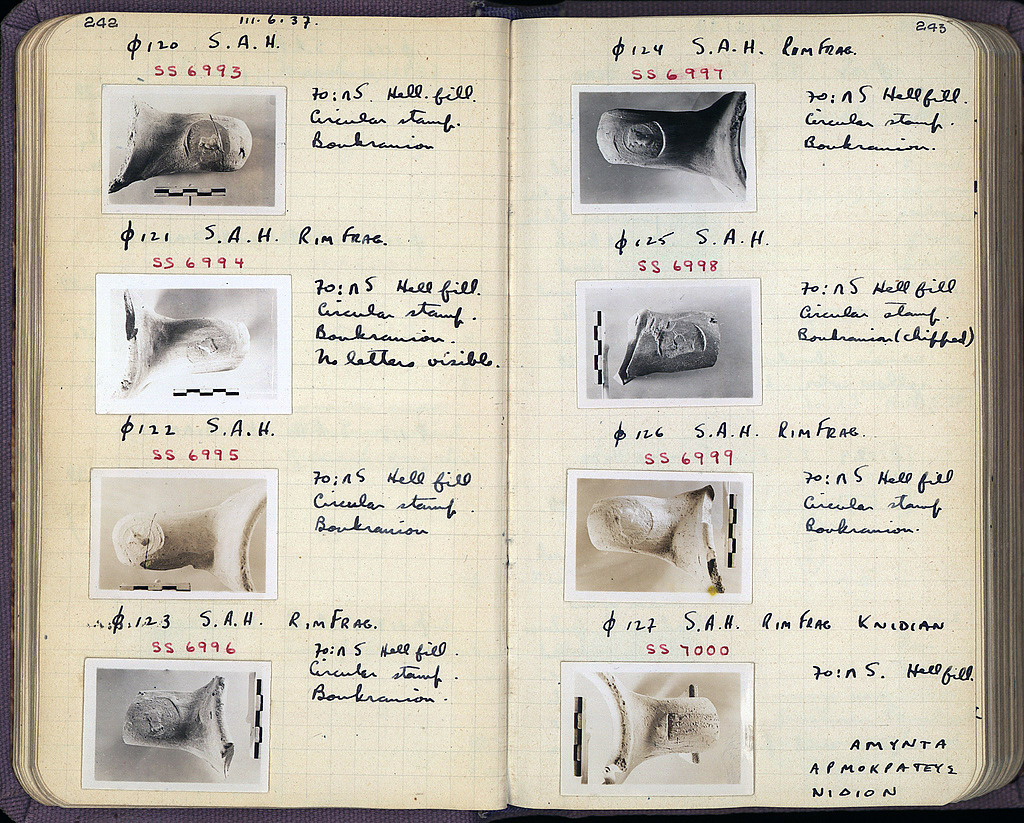 242
III.6.37.
φ120 S.A.H.
SS 6993
70:ΠS. Hell. fill.
Circular stamp.
Boukranion
φ121 S.A.H. RIM FRAG.
SS 6994
70:ΠS Hell fill.
Circular stamp.
Boukranion.
No letters visible.
φ122 S.A.H.
SS 6995
70:ΠS Hell fill
Circular stamp.
Boukranion
φ123 S.A.H. RIM FRAG.
SS 6996
70:ΠS Hell fill.
Circular stamp.
Boukranion.
243
φ124 S.A.H. RIM FRAG.
SS 6997
70:ΠS Hell fill.
Circular stamp.
Boukranion.
φ125 S.A.H.
SS 6998
70:ΠS Hell fill
Circular stamp.
Boukranion (chipped)
φ126 S.A.H. RIM FRAG.
SS 6999
70:ΠS Hell fill
Circular stamp
Boukranion.
φ127 S.A.H. RIM FRAG KNIDIAN
SS 7000
70:ΠS. Hell fill.
ΑΜΥΝΤΑ
ΑΡΜΟΚΡΑΤΕΥΣ
ΝΙΔΙΟΝ